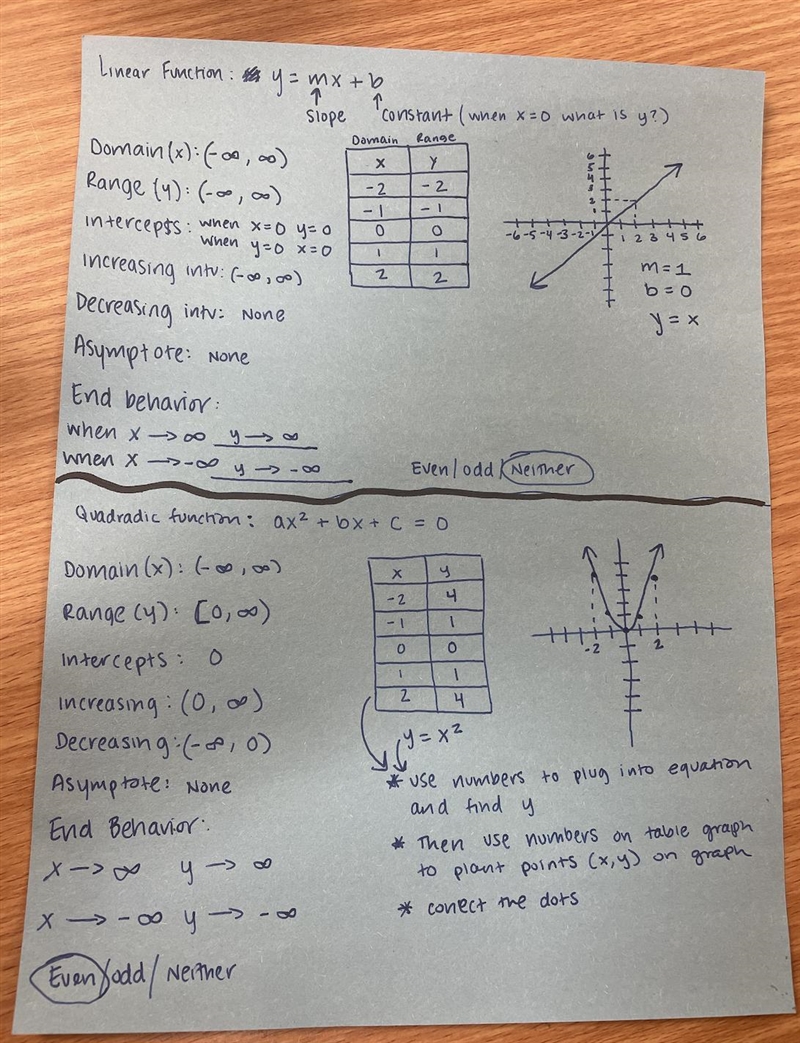 Linear Function: y = mx + b
↑ slope ↑ constant (when x=0 what is y?)
Domain(x): (-∞, ∞)
Range (y): (-∞, ∞)
Intercepts: when x=0 y=0
when y=0 x=0
Increasing intv: (-∞, ∞)
Decreasing intv: None
Asymptote: None
End behavior:
when x → ∞ y → ∞
when x → -∞ y → -∞
Domain Range
x y
-2 -2
-1 -1
0 0
1 1
2 2
6
5
4
3
2
1
-6 -5 -4 -3 -2 -1 1 2 3 4 5 6
m=1
b=0
y = x
Even/odd/Neither
Quadradic function: ax² + bx + c = 0
Domain(x): (-∞, ∞)
Range (y): [0, ∞)
Intercepts: 0
Increasing: (0, ∞)
Decreasing: (-∞, 0)
Asymptote: None
End Behavior:
x → ∞ y → ∞
x → -∞ y → -∞
Even/odd/Neither
x y
-2 4
-1 1
0 0
1 1
2 4
y = x²
-2 2
* use numbers to plug into equation
and find y
* Then use numbers on table graph
to plant points (x,y) on graph
* conect the dots